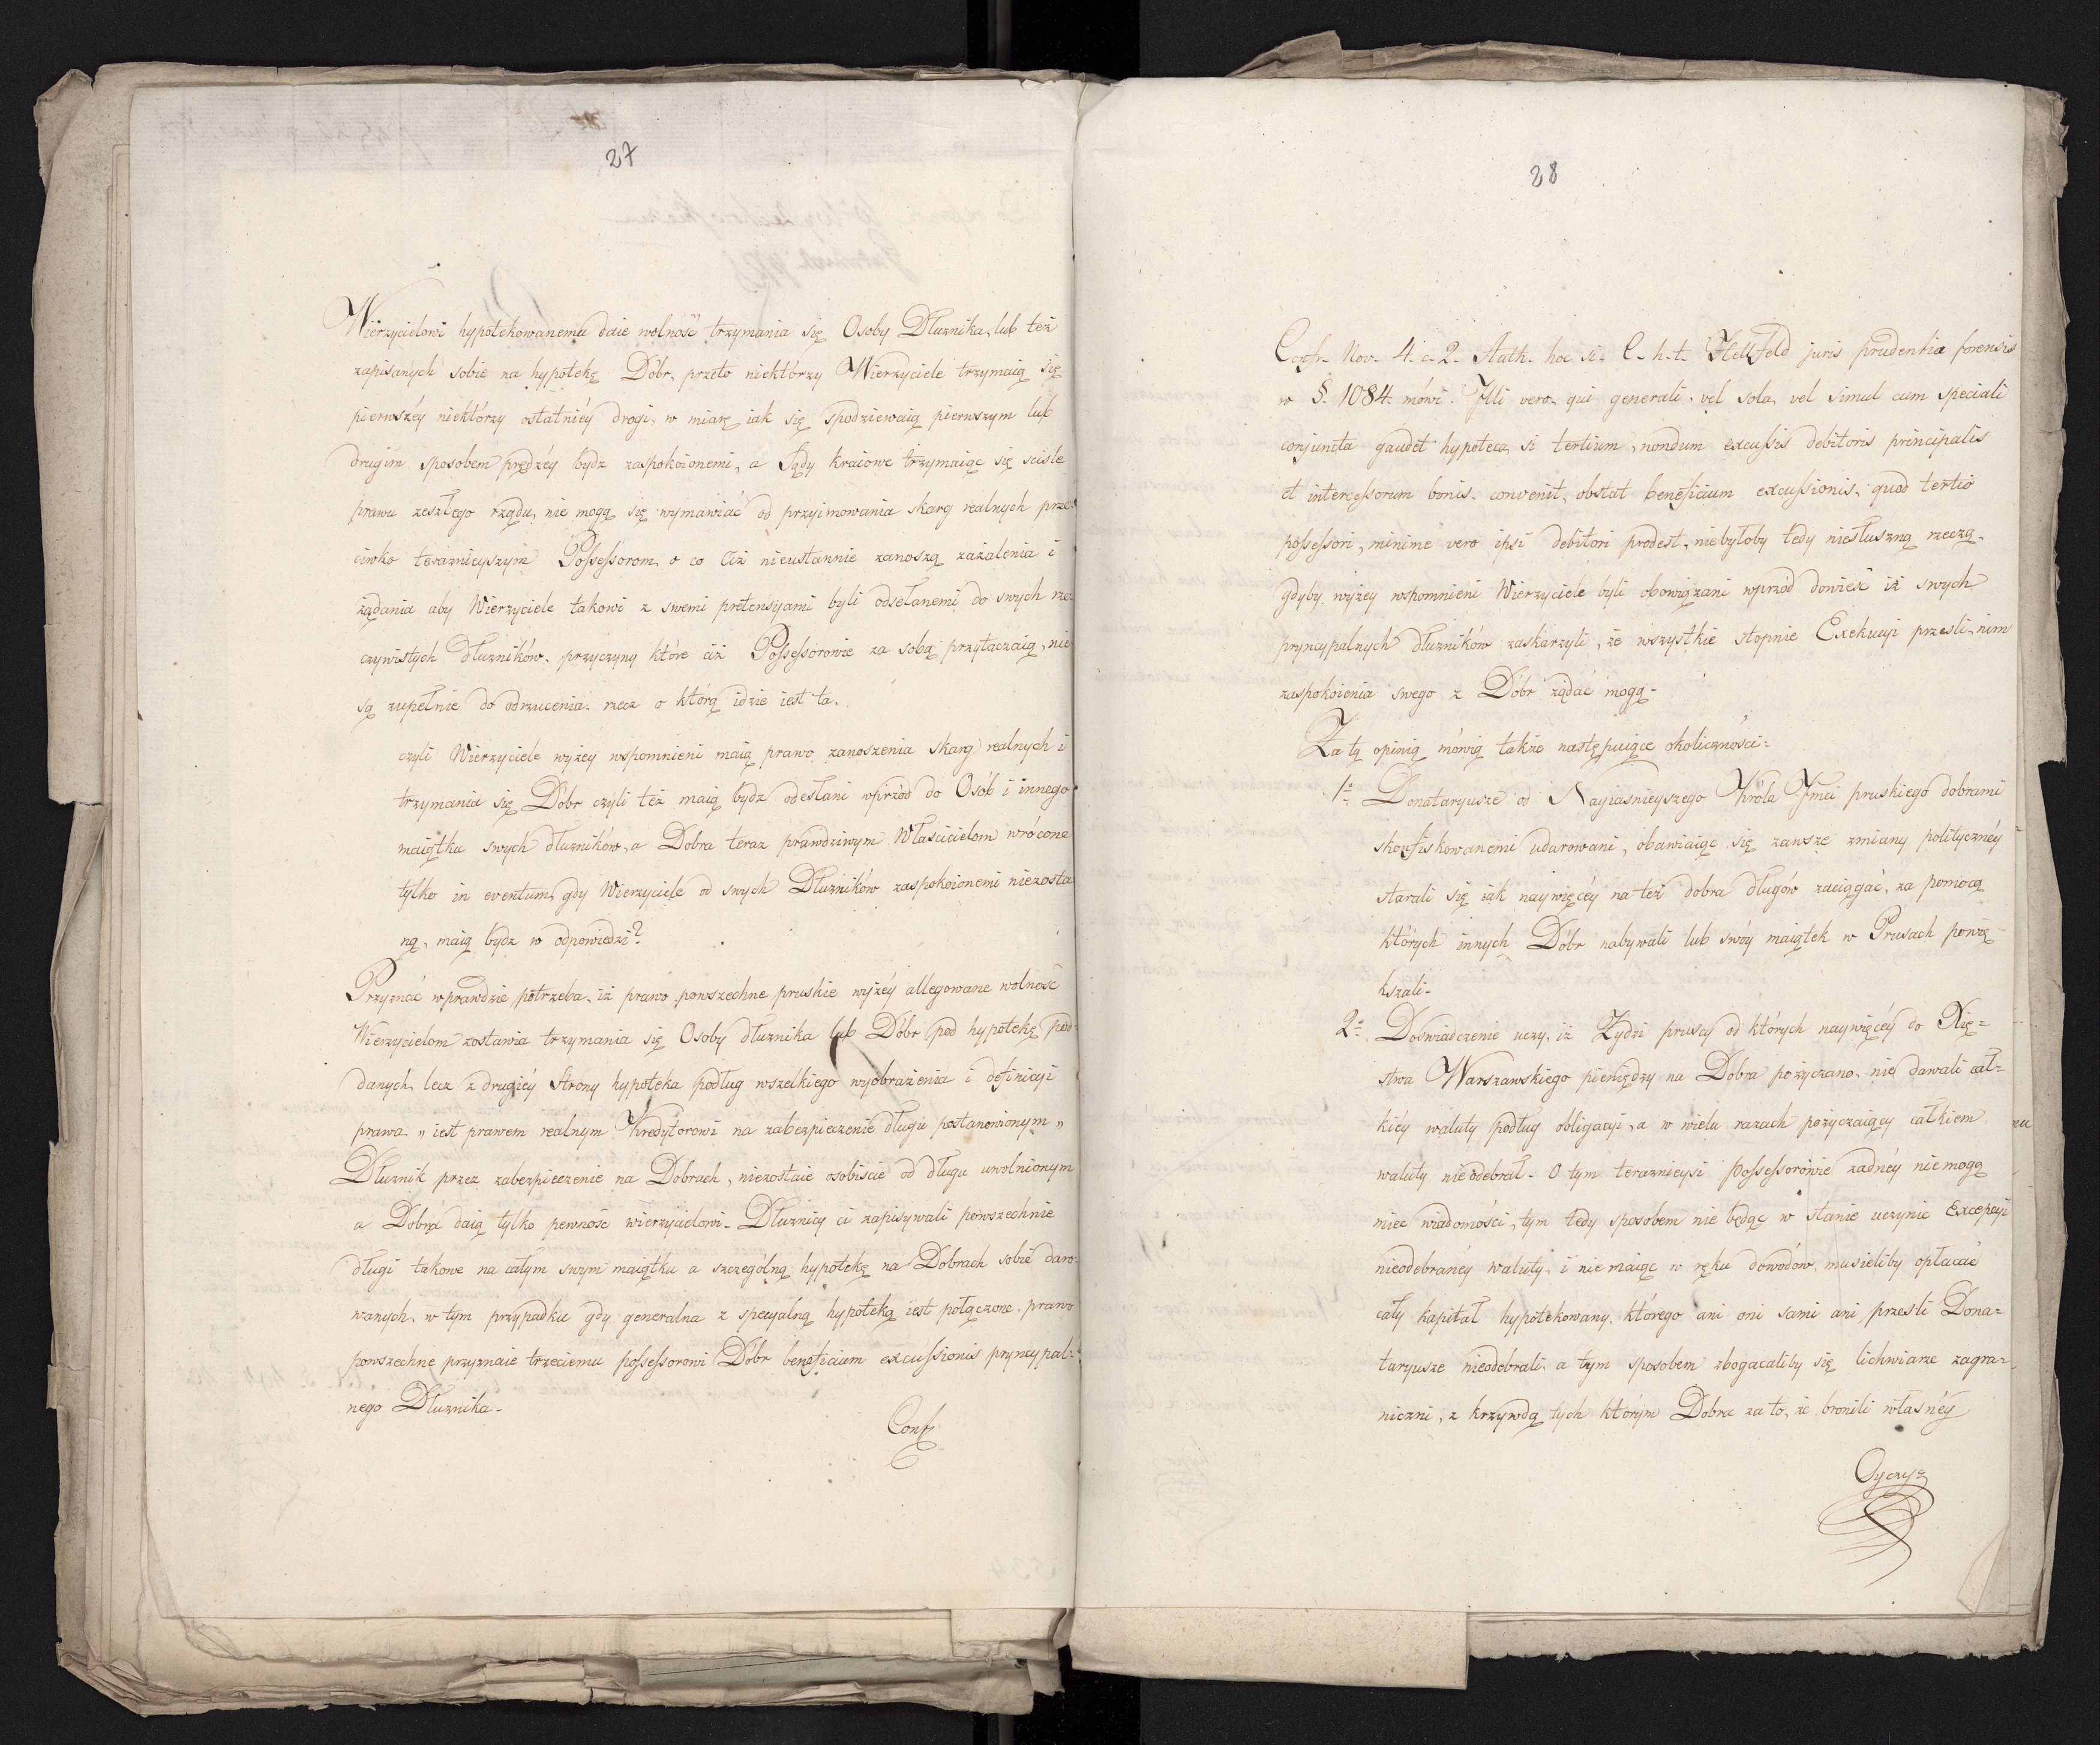 27
Wierzycielowi hypotekowanemu daie wolność trzymania się Osoby Dłużnika, lub też
zapisanych sobie na hypotekę Dóbr, przeto niektórzy Wierzyciele trzymaią się
pierwszéy niektórzy ostatniéy drogi, w miarę iak się spodziewaią pierwszym lub
drugim sposobem prędzéy bydź zaspokoionemi, a Sądy kraiowe trzymaiąc się scisle
prawa zeszłego rządu, nie mogą się wymawiać od przyimowania skarg realnych prze-
ciwko teraznieyszym Possessorom, o co ciż nieustannie zanoszą zażalenia i
żądania aby Wierzyciele takowi z swemi pretensyami byli odsełanemi do swych rze-
czywistych Dłużników. przyczyny które ciż Possessorowie za sobą przytaczaią, nie
są zupełnie do odrzucenia. rzecz o którą idzie iest ta.
czyli Wierzyciele wyżey wspomnieni maią prawo zanoszenia skarg realnych i
trzymania się Dóbr czyli też maią bydz odesłani wprzód do Osób i innego
maiątku swych dłużników, a Dobra teraz prawdziwym Właścicielom wrócone
tylko in eventum, gdy Wierzyciele od swych Dłużników zaspokoionemi niezosta
ną, maią bydz w odpowiedzi?
Przyznać wprawdzie potrzeba, iż prawo powszechne pruskie wyżéy allegowane wolność
Wierzycielom zostawia trzymania się Osoby dłużnika lub Dóbr pod hypotekę pod-
danych, lecz z drugiéy Strony hypoteka podług wszelkiego wyobrażenia i definicyi
prawa „ iest prawem realnym Kredytorowi na zabezpieczenie długu postanowionym „
Dłużnik przez zabezpieczenie na Dobrach, niezostaie osobiscie od długu uwolnionym
a Dobra daią tylko pewność wierzycielowi. Dłużnicy ci zapisywali powszechnie
długi takowe na całym swym maiątku a szczególną hypotekę na Dobrach sobie daro-
wanych, w tym przypadku gdy generalna z specyalną hypoteką iest połączone, prawo
powszechne przyznaie trzeciemu possessorowi Dóbr beneficium excussionis pryncypal-
nego Dłużnika.
Conf
28
Confr. Nov. 4. c. 2. Auth. hoc si. C. h. t. Hellfeld juris prudentia forensis
w §. 1084. mówi. Illi vero qui generali, vel sola, vel simul cum speciali
conjuncta gaudet hypoteca, si tertium, nondum excussis debitoris principalis
et intercessorum bonis, convenit, obstat beneficium excussionis, quod tertio
possessori, minime vero ipsi debitori prodest, niebyłoby tedy niesłuszną rzeczą,
gdyby wyżey wspomnieni Wierzyciele byli obowiązani wprzód dowieść iż swych
pryncypalnych dłużników zaskarżyli, że wszystkie stopnie Exekucyi przeszli, nim
zaspokoienia swego z Dóbr żądać mogą.
Za tą opinią mówią także następuiące okoliczności:
1o Donataryusze od Nayiasnieyszego Króla Jmci pruskiego dobrami
skonfiskowanemi udarowani, obawiaiąc się zawsze zmiany polityczney
starali się iak naywięcéy na też dobra długów zaciągać, za pomocą
których innych Dóbr nabywali lub swóy maiątek w Prusach powię-
kszali.
2o Doświadczenie uczy, iż Zydzi pruscy od których naywięcéy do Xię=
stwa Warszawskiego pieniędzy na Dobra pożyczano, nie dawali cał=
kiéy waluty podług obligacyi, a w wielu razach pożyczaiący całkiem
waluty nieodebrał. O tym teraznieysi possessorowie żadnéy nie mogą
mieć wiadomości, tym tedy sposobem nie będąc w stanie uczynić Excepcyi
nieodebranéy waluty, i nie maiąc w ręku dowodów, musieliby opłacać
cały kapitał hypotekowany, którego ani oni sami ani przeszli Dona=
taryusze nieodebrali, a tym sposobem zbogacaliby się lichwiarze zagra=
niczni, z krzywdą tych którym Dobra za to, że bronili własnéy
Oyczy=